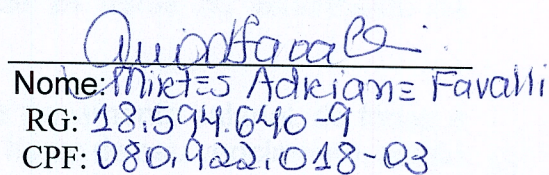 Nome: Mirtes Adriane Favalli
RG: 18.594.640-9
CPF: 080.922.018-03